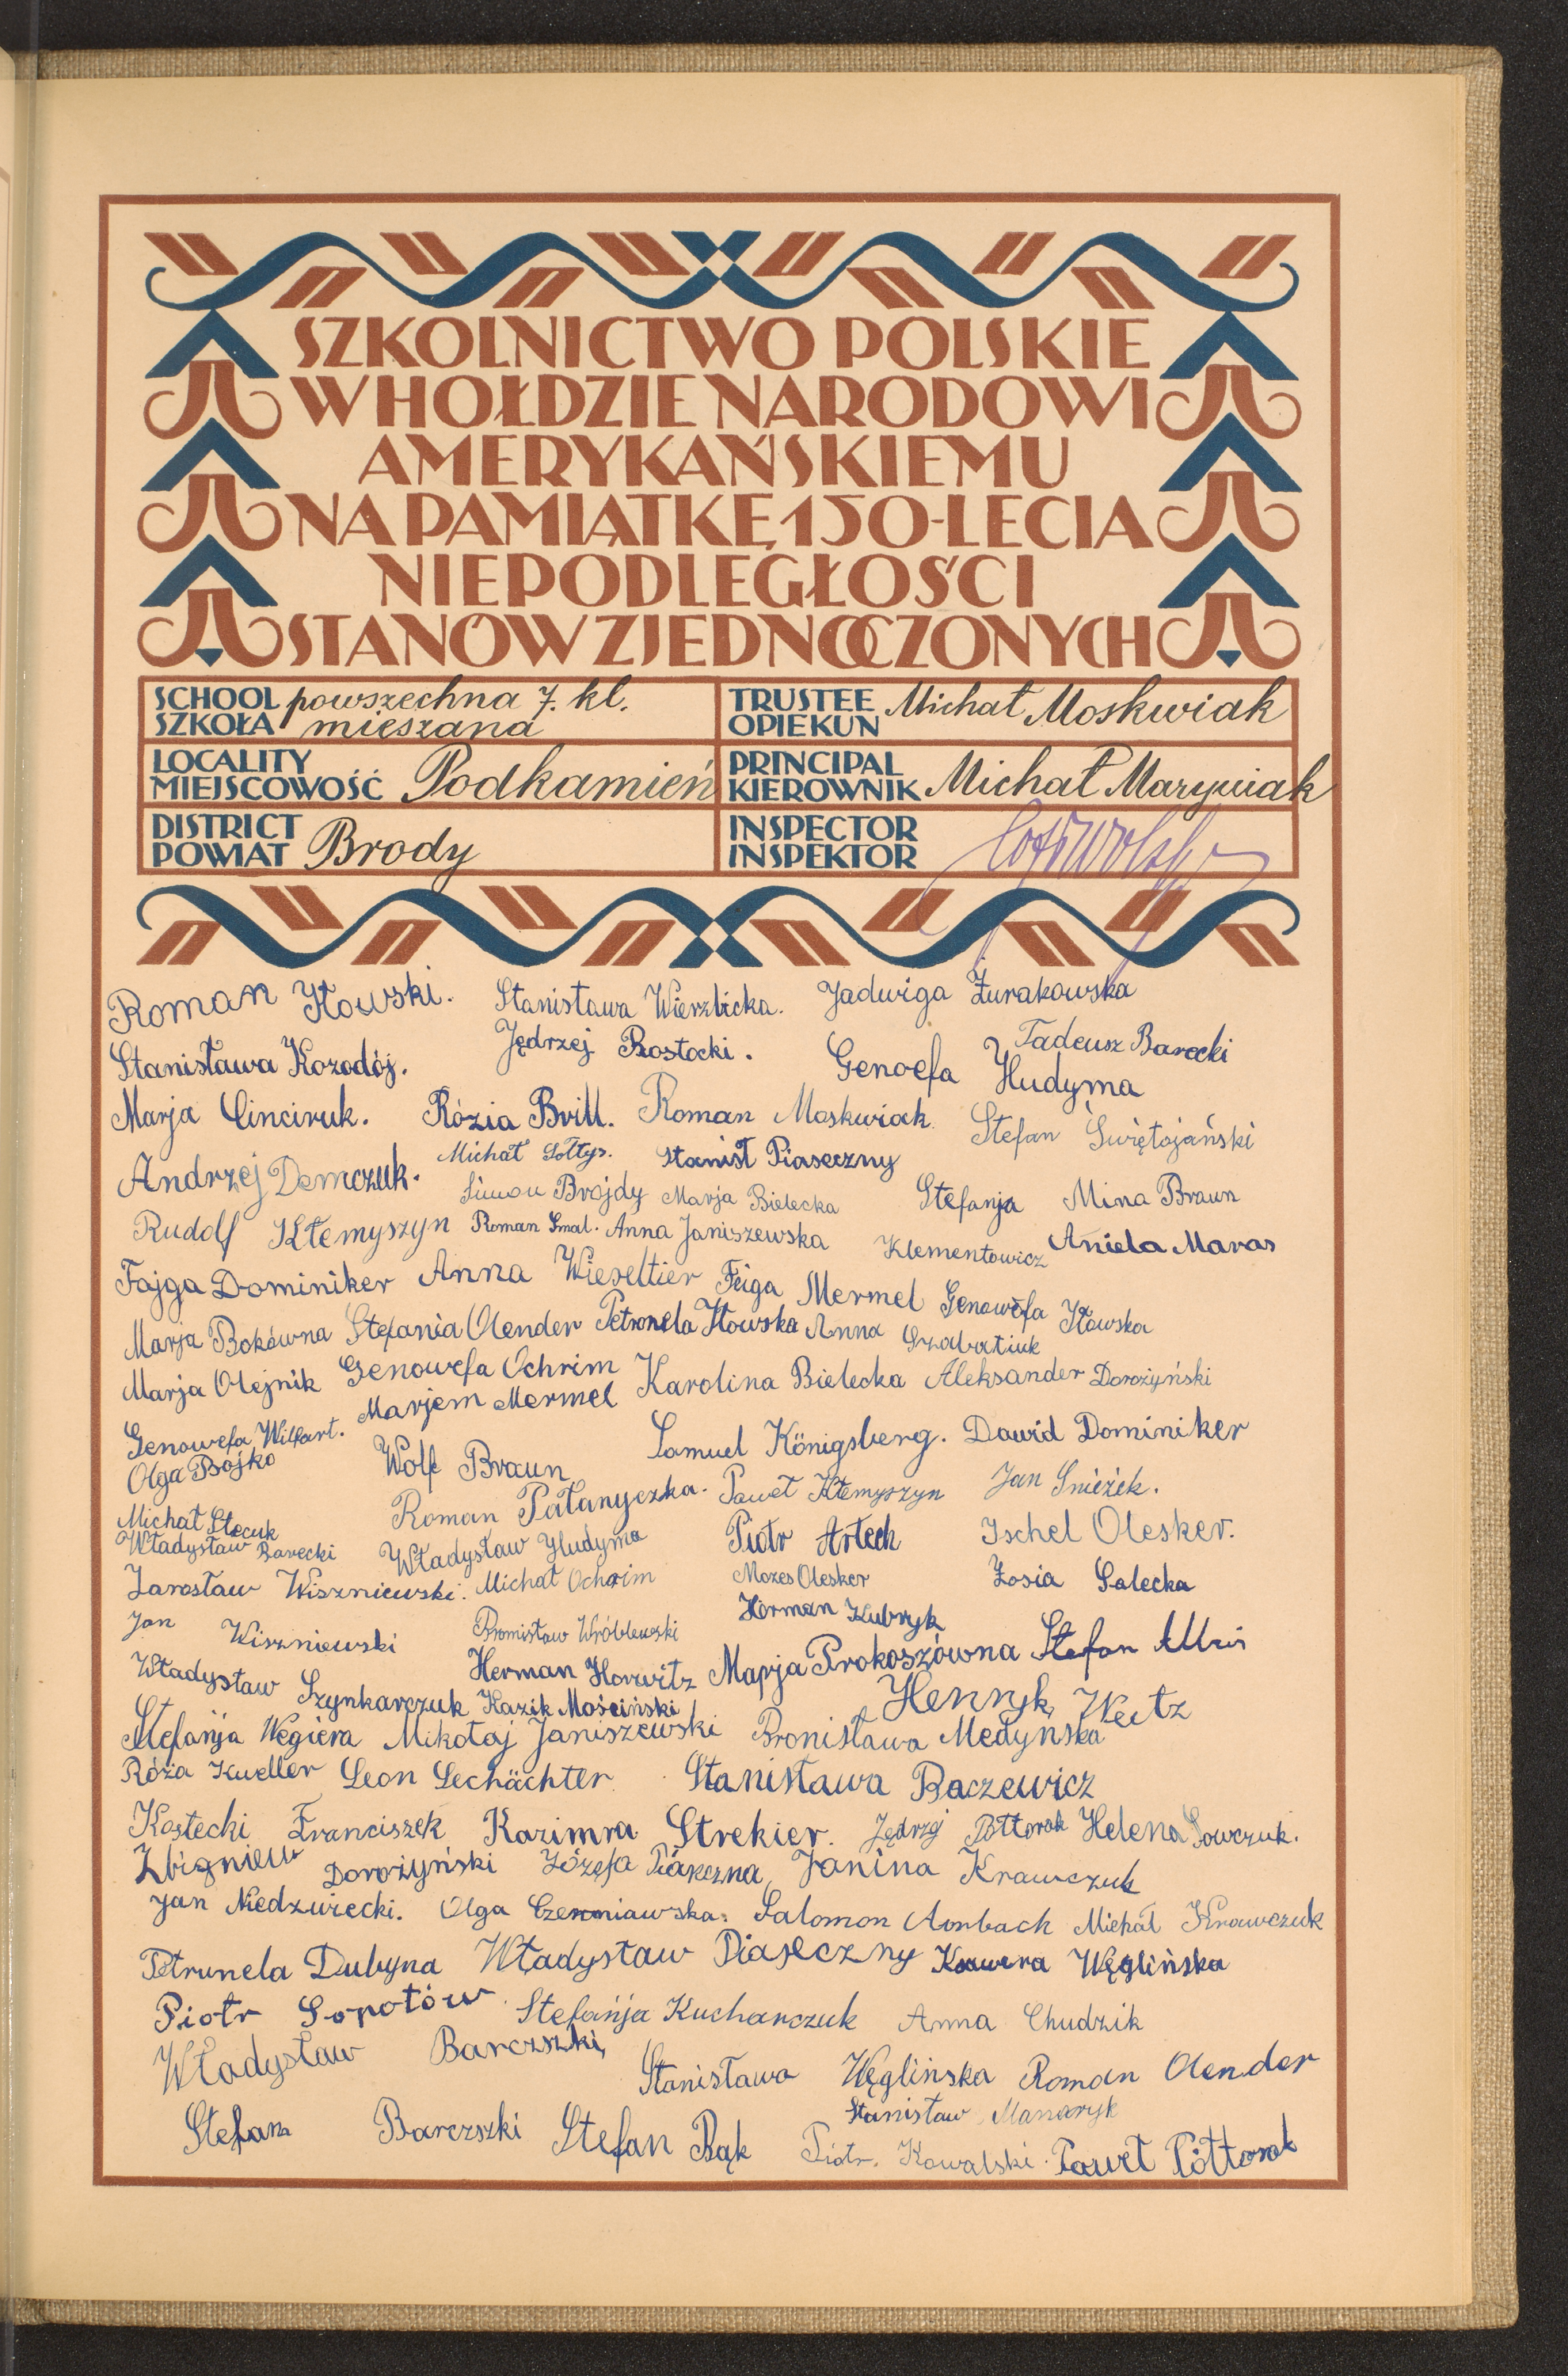 SZKOLNICTWO POLSKIE
W HOŁDZIE NARODOWI
AMERYKAŃSKIEMU
NA PAMIĄTKĘ 150-LECIA
NIEPODLEGŁOŚCI
STANÓW ZJEDNOCZONYCH
SCHOOL SZKOŁA powszechna 7. kl. mieszana
TRUSTEE OPIEKUN Michał Moskwiak
LOCALITY MIEJSCOWOŚĆ Podkamień
PRINCIPAL KIEROWNIK Michał Marywiak
DISTRICT POWIAT Brody
INSPECTOR INSPEKTOR
Roman Iłowski. Stanisława Wierzbicka. Jadwiga Żurakowska
Stanisława Kozodój. Jędrzej Rostocki. Genoefa Hudyma Tadeusz Barecki
Marja Cinciruk. Rózia Brill. Roman Moskwiak Stefan Świętojański
Andrzej Demczuk. Michał Sołtys. Stanisł Piaseczny
Simon Brojdy Marja Bielecka Stefanja Klementowicz Mina Braun
Rudolf Kłemyszyn Roman Smal. Anna Janiszewska Aniela Maras
Fajga Dominiker Anna Wieseltier Feiga Mermel Genowefa Iłowska
Marja Bokówna Stefania Olender Petronela Iłowska Anna Szabatiuk
Marja Olejnik Genowefa Ochrim Karolina Bielecka Aleksander Dorożyński
Genowefa Wilfart. Marjem Mermel
Olga Bojko Wolf Braun Samuel Königsberg. Dawid Dominiker
Michał Stecuk Roman Pałanyczka. Paweł Kłemyszyn Jan Śnieżek.
Władysław Barecki Władysław Hudyma Piotr Artech Ischel Olesker.
Jarosław Wiszniewski. Michał Ochrim Mozes Olesker Zosia Salecka
Jan Wiszniewski Bronisław Wróblewski Herman Kubryk
Władysław Szynkarczuk Herman Horwitz Marja Prokoszówna Stefan
Kazik Mościński Henryk Weitz
Stefanja Węgiera Mikołaj Janiszewski Bronisława Medyńska
Róża Kueller Leon Lechächter Stanisława Baczewicz
Kostecki Franciszek Kazimra Strekier. Jędrzej Półtorak Helena Sowczuk.
Zbigniew Dorożyński Józefa Piaseczna Janina Krawczuk
Jan Niedzwiecki. Olga Czerniawska. Salomon Aonbach Michał Krawczuk
Petrunela Dubyna Władysław Piaseczny Ksawera Węglińska
Piotr Sopotów Stefanja Kucharczuk Anna Chudzik
Władysław Barczski Stanisława Węglińska Roman Olender
Stefan Barczski Stefan Bąk Stanisław Manaryk
Piotr. Kowalski. Paweł Półtorak